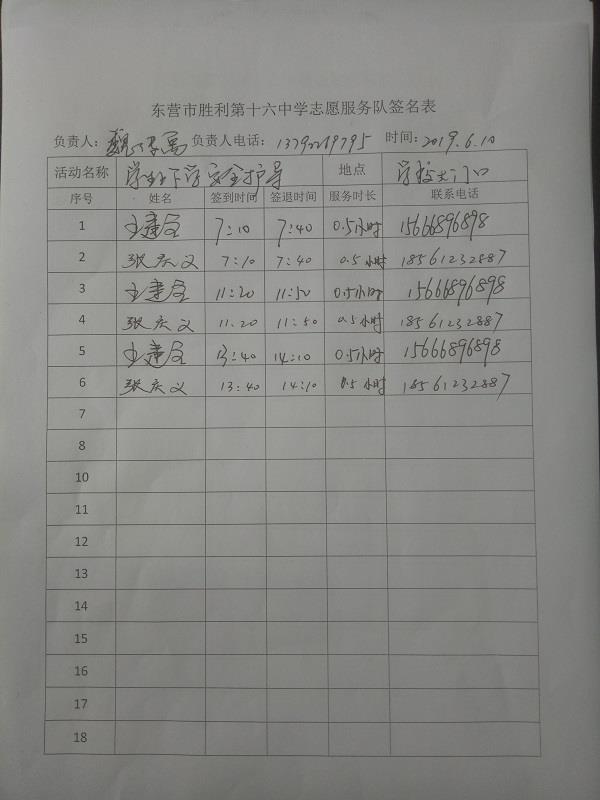 东营市胜利第十六中学志愿服务队签名表
负责人: 魏 负责人电话: 13792219795 时间: 2019.6.10
活动名称 学生上下学安全护导 地点 学校大门口
序号 姓名 签到时间 签退时间 服务时长 联系电话
1 王建全 7:10 7:40 0.5小时 15666896898
2 张庆义 7:10 7:40 0.5小时 18561232887
3 王建全 11:20 11:50 0.5小时 15666896898
4 张庆义 11.20 11:50 0.5小时 18561232887
5 王建全 13:40 14:10 0.5小时 15666896898
6 张庆义 13:40 14:10 0.5小时 18561232887
7
8
10
11
12
13
14
15
16
17
18